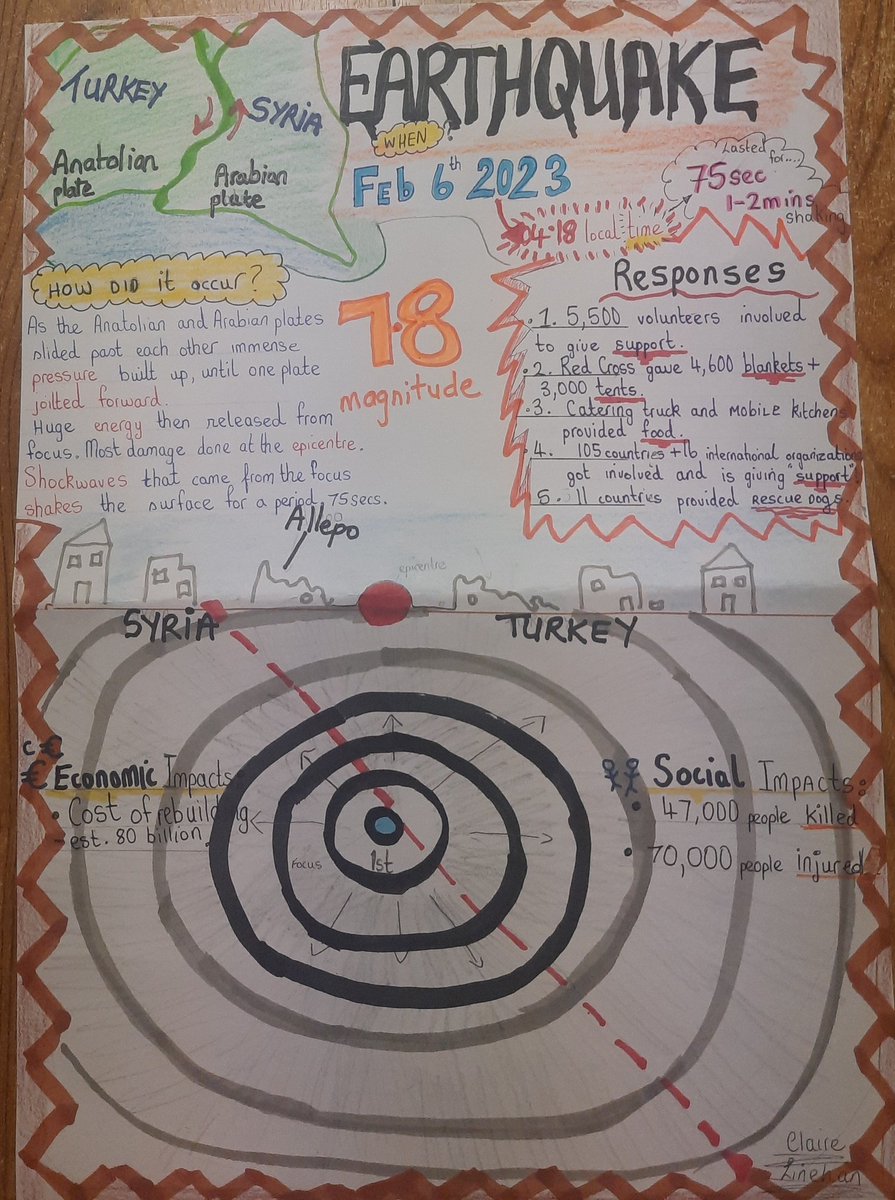 EARTHQUAKE
TURKEY
SYRIA
Anatolian
plate
Arabian
plate
WHEN?
FEB 6th 2023
Lasted
for....
75sec
1-2mins
shaking
04:18 local time
HOW DID it occur?
As the Anatolian and Arabian plates
slided past each other immense
pressure built up, until one plate
joilted forward.
Huge energy then released from
focus. Most damage done at the epicentre.
Shockwaves that came from the focus
shakes the surface for a period, 75secs.
7.8
magnitude
Responses
1. 5,500 volunteers involved
to give support.
2. Red Cross gave 4,600 blankets +
3,000 tents.
3. Catering truck and MOBILE kitchens
provided food.
4. 105 countries +16 international organizations
got involved and is giving "support".
5. 11 countries provided RESCUE DOGS.
Allepo
epicentre
SYRIA
TURKEY
C €
€ Economic Impacts:
• Cost of rebuilding
- est. 80 billion
Focus
1st
Social Impacts:
• 47,000 people killed
• 70,000 people injured
Claire
Linehan